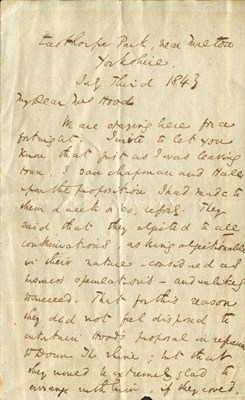 Easthorpe Park, near Malton
Yorkshire.
July Third 1843
My Dear Mrs Hood
We are staying here for a
fortnight. I write to let you
know that just as I was leaving
town, I saw Chapman and Hall
upon the proposition I had made to
them a week or so, before. They
said that they objected to all
continuations as being objectionable
in their nature – considered as
business speculations – and unlikely
to succeed. That for this reason
they did not feel disposed to
entertain Hood's proposal in reference
to Down The Rhine; but that
they would be extremely glad to
arrange with him, if they could